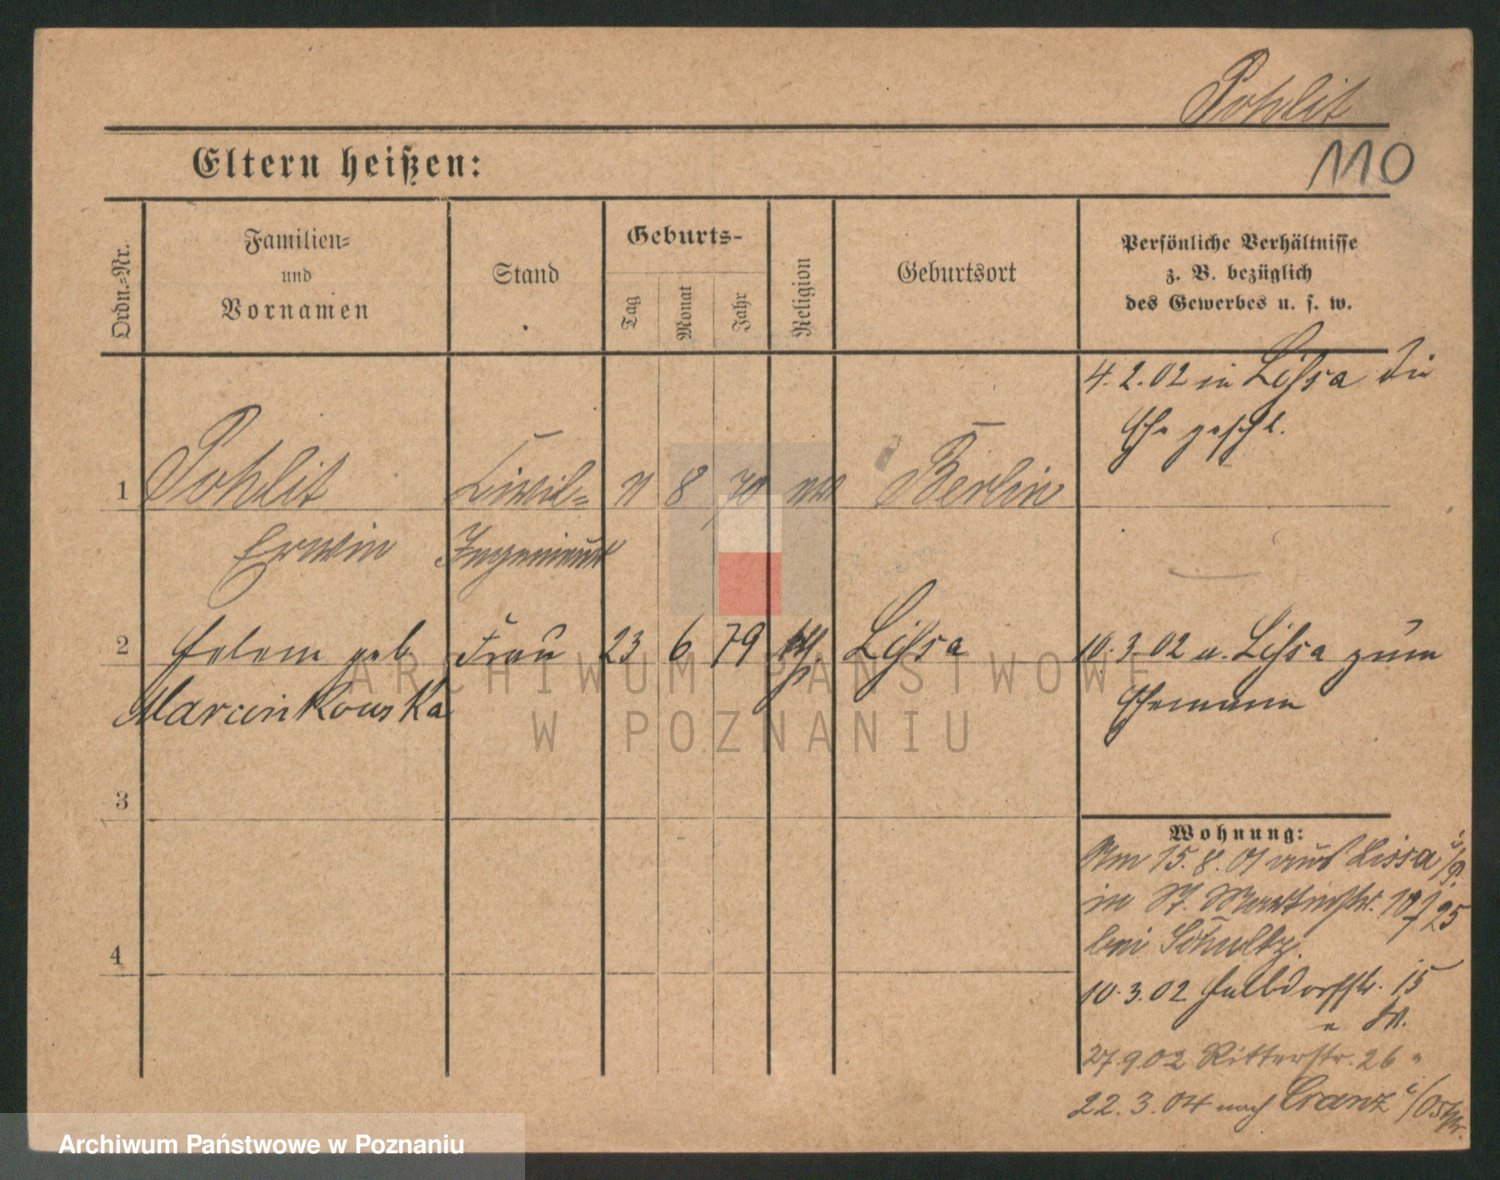 Pohlit
110
Eltern heißen:
Ordn.-Nr.
Familien-
und
Vornamen
Stand
Geburts-
Tag
Monat
Jahr
Religion
Geburtsort
Persönliche Verhältnisse
z. B. bezüglich
des Gewerbes u. s. w.
4.2.02 in Lissa die
Ehe geschl.
1 Pohlit Civil- 11 8 70 Berlin
Erwin Ingenieur
2 Helene geb Frau 23 6 79 kth. Lissa
Marcinkowska
10.3.02 v. Lissa zum
Ehemann
3
4
Wohnung:
Am 15.8.01 aus Lissa i/P.
in St. Martinstr. 25
bei Schultz.
10.3.02 Halbdorfstr. 15
27.9.02 Ritterstr. 26
22.3.04 nach Cranz i/Ostpr.
ARCHIWUM PAŃSTWOWE
W POZNANIU
Archiwum Państwowe w Poznaniu